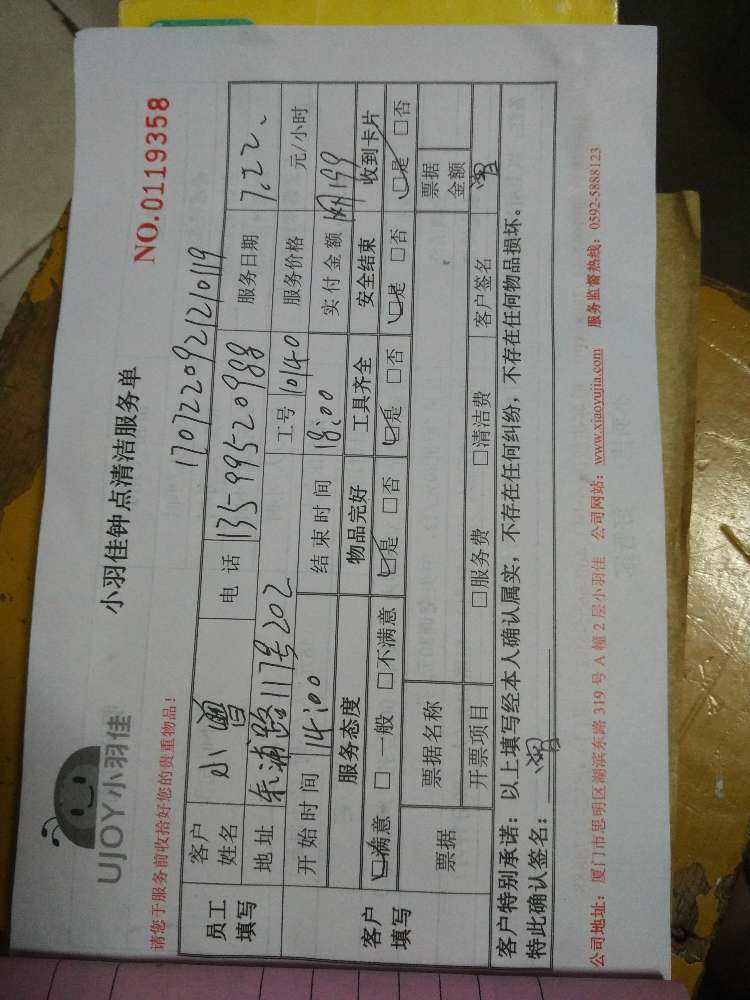 UJOY小羽佳
小羽佳钟点清洁服务单
NO.0119358
请您于服务前收拾好您的贵重物品！
1707220921210119
员工填写
客户姓名 小曾 电话 135-99520988 服务日期 7.22、
地址 东浦路117号202 工号 10140 服务价格 元/小时
开始时间 14:00 结束时间 18:00 实付金额 199
客户填写
服务态度 物品完好 工具齐全 安全结束 收到卡片
☑满意 □一般 □不满意 ☑是 □否 ☑是 □否 ☑是 □否 ☑是 □否
票据 票据名称 票据金额
开票项目 □服务费 □清洁费 客户签名
客户特别承诺：以上填写经本人确认属实，不存在任何纠纷，不存在任何物品损坏。
特此确认签名：
公司地址：厦门市思明区湖滨东路 319 号 A 幢 2 层小羽佳 公司网站：www.xiaoyujia.com 服务监督热线：0592-5888123